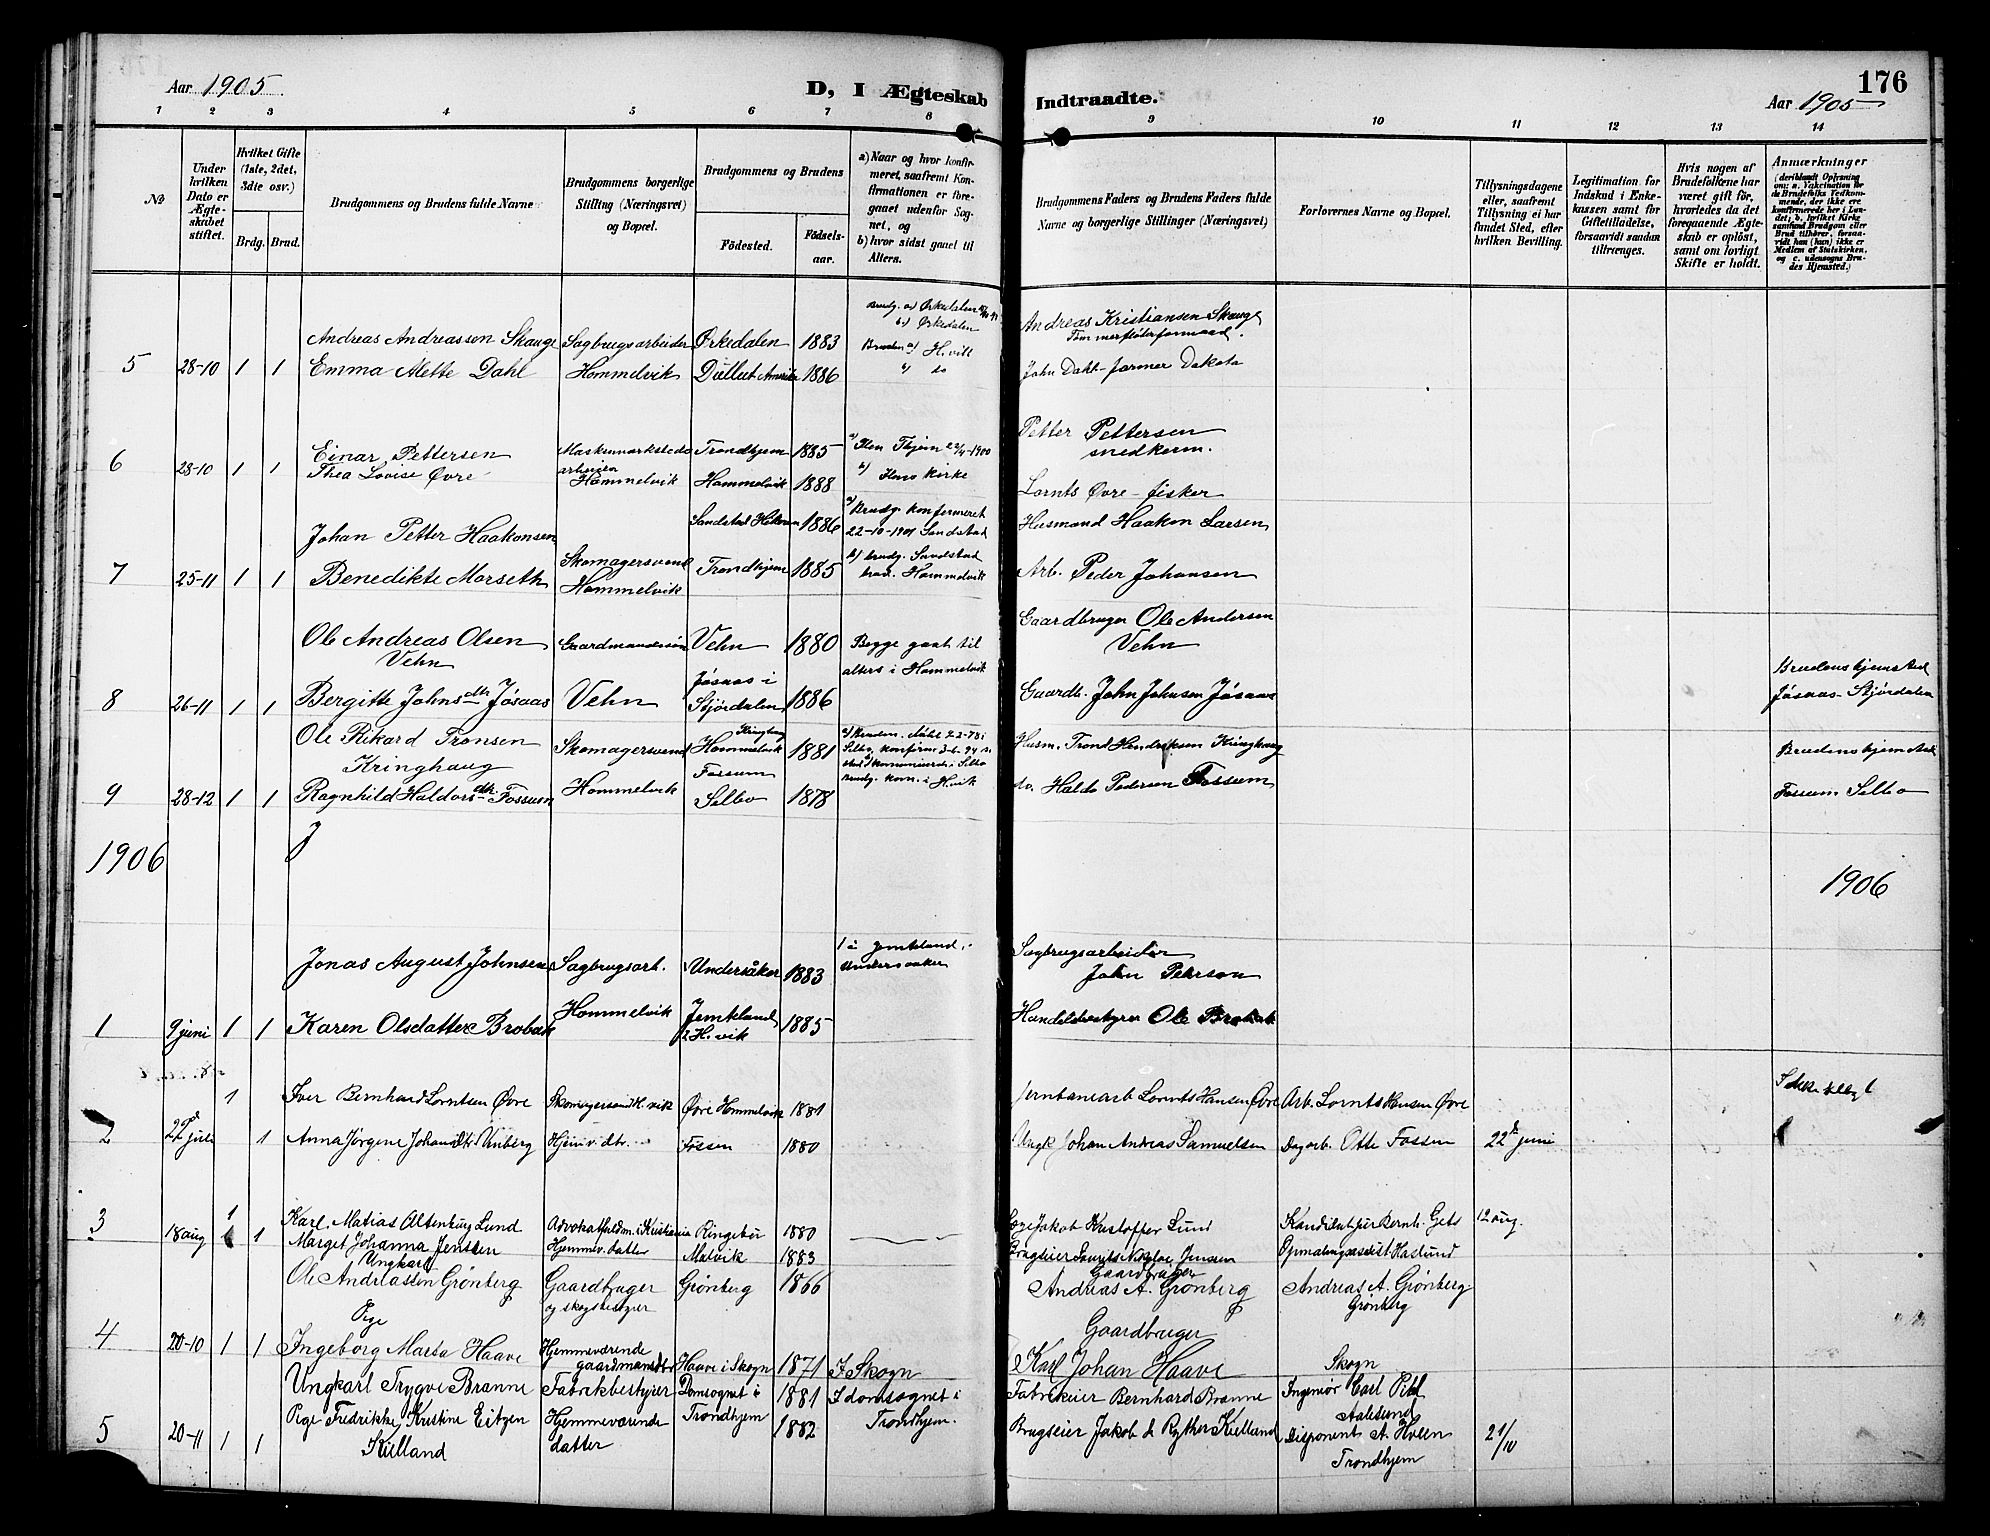 Aar 1905
D, I Ægteskab
Indtraadte.
176
Aar 1905
1 2 3 4 5 6 7 8 9 10 11 12 13 14
No
Under hvilken Dato er Ægteskabet stiftet.
Hvilket Gifte (1ste, 2det, 3die osv.)
Brdg. Brud.
Brudgommens og Brudens fulde Navne
Brudgommens borgerlige Stilling (Næringsvei) og Bopæl.
Brudgommens og Brudens
Fødested.
Fødselsaar.
a) Naar og hvor konfirmeret, saafremt Konfirmationen er foregaaet udenfor Sognet, og
b) hvor sidst gaaet til Alters.
Brudgommens Faders og Brudens Faders fulde Navne og borgerlige Stillinger (Næringsvei)
Forlovernes Navne og Bopæl.
Tillysningsdagene eller, saafremt Tillysning ei har fundet Sted, efter hvilken Bevilling.
Legitimation for Indskud i Enkekassen samt for Giftetilladelse, forsaavidt saadan tiltrænges.
Hvis nogen af Brudefolkene har været gift før, hvorledes da det foregaaende Ægteskab er opløst, samt om lovligt Skifte er holdt.
Anmærkninger
(deriblandt Oplysning om: a. Vakcination for de Brudefolks Vedkommende, der ikke ere konfirmerede her i Landet; b. hvilket Kirkesamfund Brudgom eller Brud tilhører, forsaavidt han (hun) ikke er Medlem af Statskirken, og c. udensogns Brudes Hjemsted.)
Andreas Andreassen Skauge Sagbrugsarbeider Ørkedalen 1883
b) Ørkedalen
Andreas Kristiansen Skauge
Tømmerfløterformand.
5 28-10 1 1 Emma Mette Dahl Hommelvik Amerika 1886
Bruden a) H.vik
do
John Dahl - farmer Dakota
Einar Pettersen Trondhjem 1885
Petter Pettersen
snedkerm.
6 28-10 1 1 Thea Lovise Øvre Hommelvik Hommelvik 1888
b) Hens Kirke
Lornts Øvre - fisker
Johan Petter Haakonsen 1886
a) Brudg. konfirmeret
22-10-1901 Sandstad
Husmand Haakon Larsen
7 25-11 1 1 Benedikte Morseth Skomagersvend Hommelvik Trondhjem 1885
b) brudg. Sandstad
brud. Hommelvik
Arb. Peder Johansen
Ole Andreas Olsen
Vehn
Gaardmandssøn Vehn 1880
Begge gaat til
alters i Hommelvik
Gaardbruger Ole Andersen
Vehn
8 26-11 1 1 Bergitte Johnsdtr Jøsaas Vehn Jøsaas i Stjørdalen 1886
Gaardb. John Johnsen Jøsaas
Brudens hjemsted
Jøsaas - Stjørdalen
Ole Rikard Tronsen
Kringhaug
Skomagersvend Kringhaug Hommelvik 1881
Husm. Trond Hendriksen Kringhaug
9 28-12 1 1 Ragnhild Haldorsdtr. Fossum Hommelvik Fossum Selbo 1878
Brudg. kom. i H.vik
do. Haldo Pedersen Fossum
Brudens hjemsted
Fossum Selbo
1906
1906
Jonas August Johnsen Sagbrugsarb. Undersåker 1883
i Jemtland,
Undersaaker
Sagbrugsarbeider
John Person
1 9 juni 1 1 Karen Olsdatter Brobak Hommelvik Jemtland
2 H.vik 1885
Handelsbestyrer Ole Brobak
Iver Bernhard Lorntsen Øvre Øvre Hommelvik 1881
Jernbanearb Lornts Hansen Øvre
Arb. Lornts Hansen Øvre
2 juli 1 1 Anna Jørgine Hjemv. dtr. Fosen 1880
Ungk Johan Andreas Samuelsen
Dagarb. Otte Fossen
22 juni
3 18 aug 1 1 Karl Matias Altenburg Lund Ringebu 1880
Jakob Kristoffer Lund
12 aug.
Marget Johanna Jensen
Hjemmev. datter Malvik 1883
Ungkarl
Ole Andreassen Grønberg Gaardbruger Grønberg 1866
og skogbestyrer
Gaardbruger
Andreas A. Grønberg
Andreas A. Grønberg
Grønberg
Pige
4 20-10 1 1 Ingeborg Marta Haave
Hjemmeværende
gaardmandsdtr Haave i Skogn 1871 I Skogn
Gaardbruger
Karl Johan Haave
Skogn
Ungkarl Trygve Branne Fabrikbestyrer Domsognet i 1881
I domsognet i
Trondhjem.
Fabrikeier Bernhard Branne
Ingeniør Carl Pihl
Aalesund
5 20-11 1 1 Pige Fredrikke Kristine Eitzen
Kielland
Hjemmeværende
datter
Trondhjem 1882
Brugseier Jakob d Ryther Kielland
Disponent A. Hveen
Trondhjem
21/10